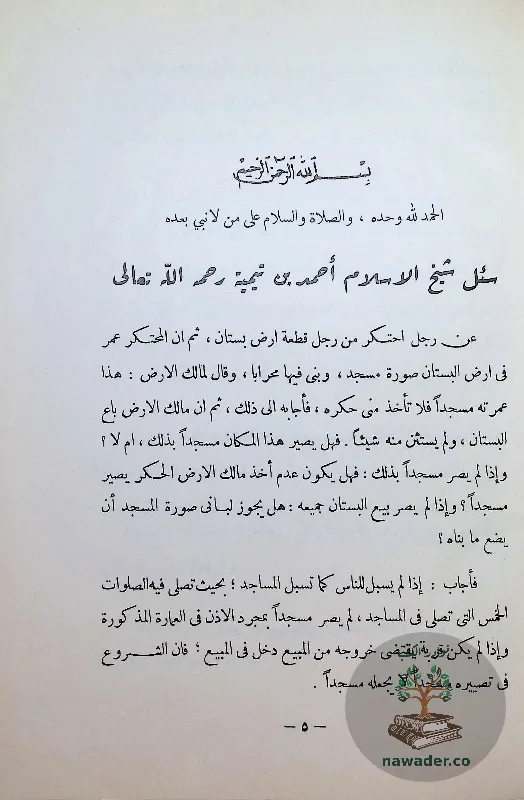 بسم الله الرحمن الرحيم
الحمد لله وحده ، والصلاة والسلام على من لا نبي بعده
سئل شيخ الاسلام أحمد بن تيمية رحمه الله تعالى
عن رجل احتكر من رجل قطعة ارض بستان ، ثم ان المحتكر عمر
فى ارض البستان صورة مسجد ، وبنى فيها محرابا ، وقال لمالك الارض : هذا
عمرته مسجداً فلا تأخذ منى حكره ، فأجابه الى ذلك ، ثم ان مالك الارض باع
البستان ، ولم يستثن منه شيئاً . فهل يصير هذا المكان مسجداً بذلك ، ام لا ؟
وإذا لم يصر مسجداً بذلك : فهل يكون عدم أخذ مالك الارض الحكر يصير
مسجداً ؟ وإذا لم يصر بيع البستان جميعه : هل يجوز لبانى صورة المسجد أن
يضع ما بناه ؟
فأجاب : إذا لم يسبل للناس كما تسبل المساجد ؛ بحيث تصلى فيه الصلوات
الخمس التى تصلى فى المساجد ، لم يصر مسجداً بمجرد الاذن فى العمارة المذكورة
وإذا لم يكن قربة يقتضى خروجه من المبيع دخل فى المبيع ؛ فان الشروع
فى تصييره مسجداً لا يجعله مسجداً .
— ٥ —
nawader.co